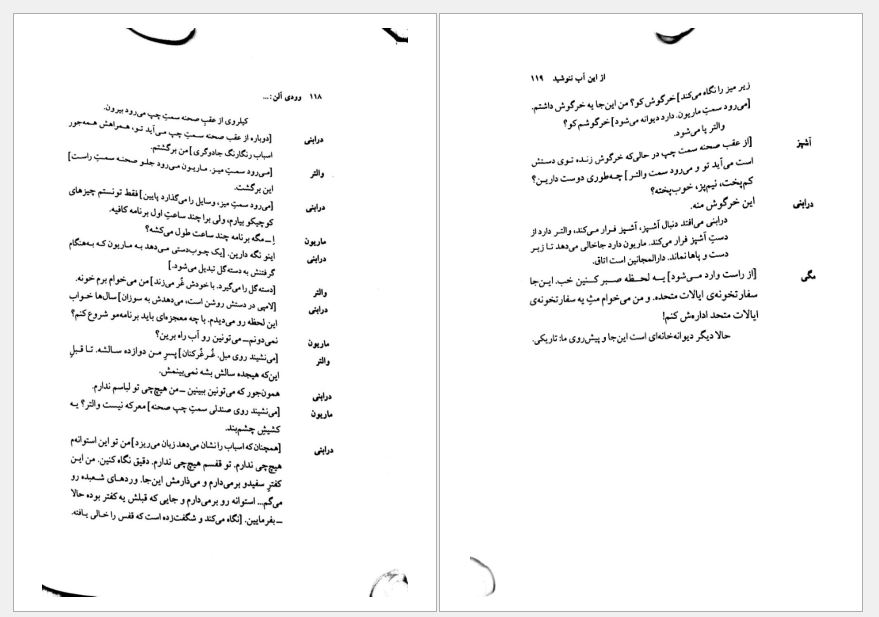 ۱۱۸ وودی آلن: ...
کیلروی از عقبِ صحنه سمتِ چپ می‌رود بیرون.
درابنی [دوباره از عقب صحنه سمتِ چپ می‌آید تو، همراهش همه‌جور
اسباب رنگارنگ جادوگری] من برگشتم.
والتر [می‌رود سمتِ میز. ماریون می‌رود جلو صحنه سمتِ راست]
این برگشت.
درابنی [می‌رود سمتِ میز، وسایل را می‌گذارد پایین] فقط تونستم چیزهای
کوچیکو بیارم، ولی برا چند ساعتِ اول برنامه کافیه.
ماریون اِ ــ مگه برنامه چند ساعت طول می‌کشه؟
درابنی اینو نگه دارین. [یک چوب‌دستی می‌دهد به ماریون که به‌هنگام
گرفتنش به دسته‌گل تبدیل می‌شود.]
والتر [دسته‌گل را می‌گیرد. با خودش غُر می‌زند] من می‌خوام برم خونه.
درابنی [لامپی در دستش روشن است، می‌دهدش به سوزان] سال‌ها خواب
این لحظه رو می‌دیدم. با چه معجزه‌ای باید برنامه‌مو شروع کنم؟
ماریون نمی‌دونم ــ می‌تونین رو آب راه برین؟
والتر [می‌نشیند روی مبل. غُرغُرکنان] پسرِ من دوازده سالشه. تا قبلِ
این‌که هیجده سالش بشه نمی‌بینمش.
درابنی همون‌جور که می‌تونین ببینین ــ من هیچ‌چی تو لباسم ندارم.
ماریون [می‌نشیند روی صندلی سمتِ چپِ صحنه] معرکه نیست والتر؟ یه
کشیشِ چشم‌بند.
درابنی [همچنان که اسباب را نشان می‌دهد زبان می‌ریزد] من تو این استوانه‌م
هیچ‌چی ندارم. تو قفسم هیچ‌چی ندارم. دقیق نگاه کنین. من این
کفترِ سفیدو برمی‌دارم و می‌ذارمش این‌جا. وردهای شعبده رو
می‌گم... استوانه رو برمی‌دارم و جایی که قبلش یه کفتر بوده حالا
ــ بفرمایین. [نگاه می‌کند و شگفت‌زده است که قفس را خالی یافته.
از این آب ننوشید ۱۱۹
زیر میز را نگاه می‌کند] خرگوش کو؟ من این‌جا یه خرگوش داشتم.
[می‌رود سمتِ ماریون. دارد دیوانه می‌شود] خرگوشم کو؟
والتر پا می‌شود.
آشپز [از عقب صحنه سمت چپ در حالی‌که خرگوش زنده توی دستش
است می‌آید تو و می‌رود سمت والتر] چه‌طوری دوست دارین؟
کم‌پخت، نیم‌پز، خوب‌پخته؟
درابنی این خرگوش منه.
درابنی می‌افتد دنبال آشپز، آشپز فرار می‌کند، والتر دارد از
دستِ آشپز فرار می‌کند. ماریون دارد جاخالی می‌دهد تا زیر
دست و پاها نماند. دارالمجانین است اتاق.
مگی [از راست وارد می‌شود] یه لحظه صبر کنین خب. این‌جا
سفارتخونه‌ی ایالات متحده. و من می‌خوام مثِ یه سفارتخونه‌ی
ایالات متحد اداره‌ش کنم!
حالا دیگر دیوانه‌خانه‌ای است این‌جا و پیشِ‌روی ما: تاریکی.